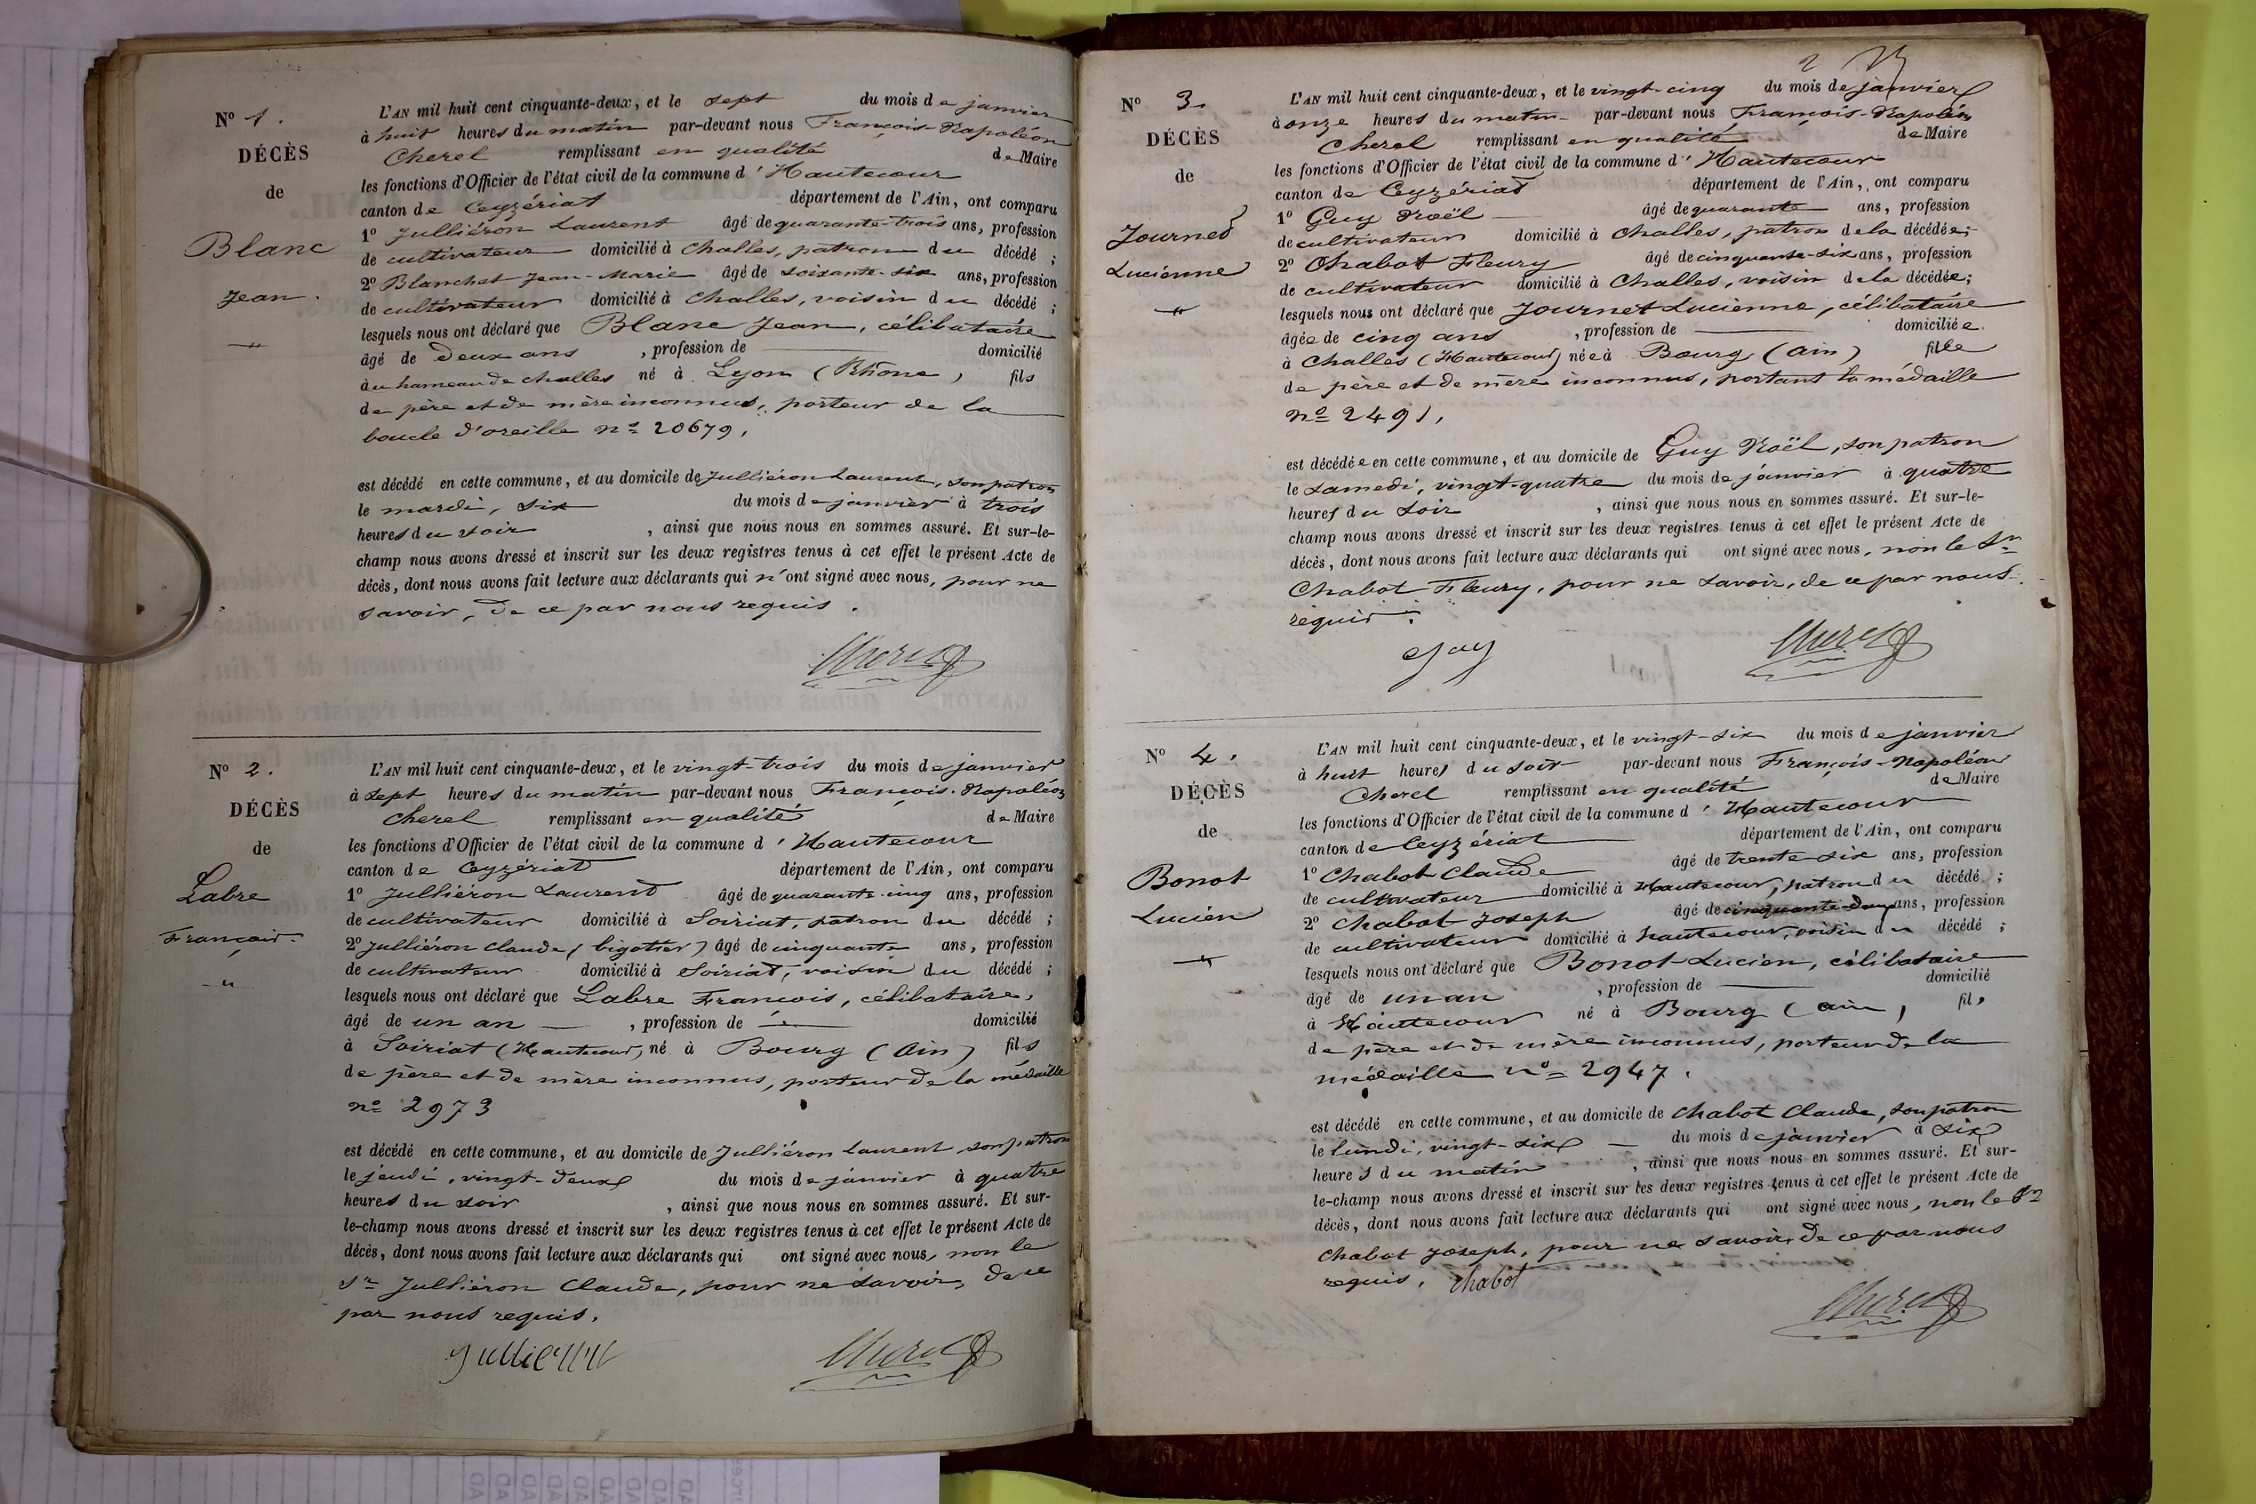 N° 1.
DÉCÈS
de
Blanc
Jean.
L'AN mil huit cent cinquante-deux, et le sept du mois de janvier
à huit heures du matin par-devant nous François-Napoléon
Cherel remplissant en qualité de Maire
les fonctions d'Officier de l'état civil de la commune d'Hautecour
canton de Ceyzériat département de l'Ain, ont comparu
1° Julliéron Laurent âgé de quarante-trois ans, profession
de cultivateur domicilié à Challes, patron du décédé ;
2° Blanchet Jean-Marie âgé de soixante-six ans, profession
de cultivateur domicilié à Challes, voisin du décédé ;
lesquels nous ont déclaré que Blanc Jean, célibataire
âgé de deux ans , profession de domicilié
au hameau de Challes né à Lyon (Rhône) fils
de père et de mère inconnus, porteur de la
boucle d'oreille n° 20679,
est décédé en cette commune, et au domicile de Julliéron Laurent, son patron
le mardi, six du mois de janvier à trois
heures du soir , ainsi que nous nous en sommes assuré. Et sur-le-
champ nous avons dressé et inscrit sur les deux registres tenus à cet effet le présent Acte de
décès, dont nous avons fait lecture aux déclarants qui n'ont signé avec nous, pour ne
savoir, de ce par nous requis.
Cherel
N° 2.
DÉCÈS
de
Labre
François.
L'AN mil huit cent cinquante-deux, et le vingt-trois du mois de janvier
à sept heures du matin par-devant nous François-Napoléon
Cherel remplissant en qualité de Maire
les fonctions d'Officier de l'état civil de la commune d'Hautecour
canton de Ceyzériat département de l'Ain, ont comparu
1° Julliéron Laurent âgé de quarante-cinq ans, profession
de cultivateur domicilié à Soiriat, patron du décédé ;
2° Julliéron Claude (bigottier) âgé de cinquante ans, profession
de cultivateur domicilié à Soiriat, voisin du décédé ;
lesquels nous ont déclaré que Labre François, célibataire,
âgé de un an , profession de domicilié
à Soiriat (Hautecour) né à Bourg (Ain) fils
de père et de mère inconnus, porteur de la médaille
n° 2973
est décédé en cette commune, et au domicile de Julliéron Laurent, son patron
le jeudi, vingt-deux du mois de janvier à quatre
heures du soir , ainsi que nous nous en sommes assuré. Et sur-
le-champ nous avons dressé et inscrit sur les deux registres tenus à cet effet le présent Acte de
décès, dont nous avons fait lecture aux déclarants qui ont signé avec nous, non le
Sr Julliéron Claude, pour ne savoir, de ce
par nous requis.
Cherel
2
N° 3.
DÉCÈS
de
Journet
Lucienne
L'AN mil huit cent cinquante-deux, et le vingt-cinq du mois de janvier
à onze heures du matin par-devant nous François-Napoléon
Cherel remplissant en qualité de Maire
les fonctions d'Officier de l'état civil de la commune d'Hautecour
canton de Ceyzériat département de l'Ain, ont comparu
1° Guy Noël âgé de quarante ans, profession
de cultivateur domicilié à Challes, patron de la décédée ;
2° Chabot Fleury âgé de cinquante-six ans, profession
de cultivateur domicilié à Challes, voisin de la décédée ;
lesquels nous ont déclaré que Journet Lucienne, célibataire
âgée de cinq ans , profession de domiciliée
à Challes (Hautecour) née à Bourg (Ain) fille
de père et de mère inconnus, portant la médaille
n° 2491,
est décédée en cette commune, et au domicile de Guy Noël, son patron
le samedi, vingt-quatre du mois de janvier à quatre
heures du soir , ainsi que nous nous en sommes assuré. Et sur-le-
champ nous avons dressé et inscrit sur les deux registres tenus à cet effet le présent Acte de
décès, dont nous avons fait lecture aux déclarants qui ont signé avec nous, non le Sr
Chabot Fleury, pour ne savoir, de ce par nous
requis.
Cherel
N° 4.
DÉCÈS
de
Bonot
Lucien
L'AN mil huit cent cinquante-deux, et le vingt-six du mois de janvier
à huit heures du soir par-devant nous François-Napoléon
Cherel remplissant en qualité de Maire
les fonctions d'Officier de l'état civil de la commune d'Hautecour
canton de Ceyzériat département de l'Ain, ont comparu
1° Chabot Claude âgé de trente-six ans, profession
de cultivateur domicilié à Hautecour, patron du décédé ;
2° Chabot Joseph âgé de cinquante-deux ans, profession
de cultivateur domicilié à hautecour, voisin du décédé ;
lesquels nous ont déclaré que Bonot Lucien, célibataire
âgé de un an , profession de domicilié
à Hautecour né à Bourg (ain) fils
de père et de mère inconnus, porteur de la
médaille n° 2947.
est décédé en cette commune, et au domicile de Chabot Claude, son patron
le lundi, vingt-six du mois de janvier à six
heures du matin , ainsi que nous nous en sommes assuré. Et sur-
le-champ nous avons dressé et inscrit sur les deux registres tenus à cet effet le présent Acte de
décès, dont nous avons fait lecture aux déclarants qui ont signé avec nous, non le Sr
Chabot Joseph, pour ne savoir, de ce par nous
requis. Chabot
Cherel